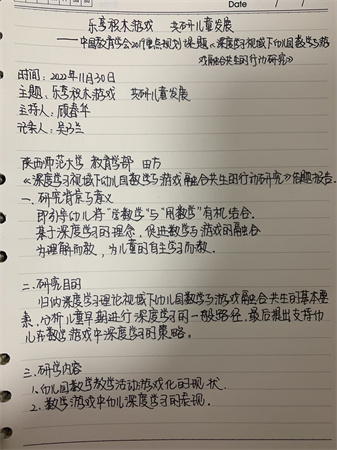 Date
乐享积木游戏 共研儿童发展
——中国教育学会2019重点规划课题《深度学习视域下幼儿园数学与游
戏融合共生的行动研究》
时间：2022年11月30日
主题：乐享积木游戏 共研儿童发展
主持人：顾春华
记录人：吴兰
陕西师范大学 教育学部 田方
《深度学习视域下幼儿园数学与游戏融合共生的行动研究》结题报告．
一．研究背景与意义
即引导幼儿将“学数学”与“用数学”有机结合．
基于深度学习的理念，促进数学与游戏的融合
为理解而教，为儿童的自主学习而教．
二．研究目的
归纳深度学习理论视域下幼儿园数学与游戏融合共生的基本要
素，分析儿童早期进行深度学习的一般路径，最后提出支持幼
儿在数学游戏中深度学习的策略。
三．研究内容
1．幼儿园数学教学活动游戏化的现状．
2．数学游戏中幼儿深度学习的表现．